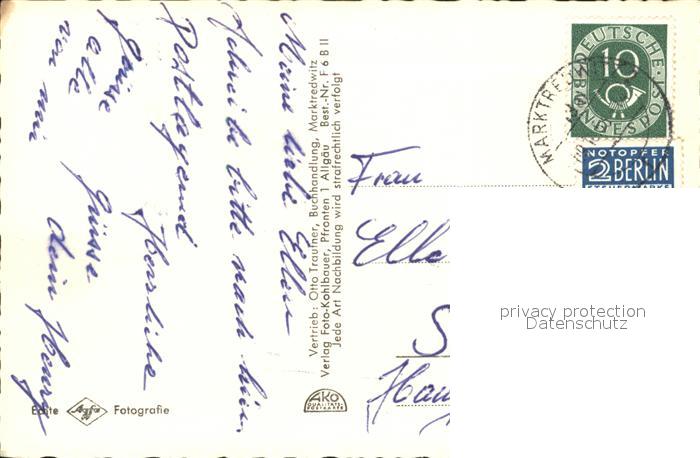 Meine liebe Ellen
Schreibe bitte nach hier
Postlagernd
Herzliche
Grüsse
dein Henry
Grüsse
alle
von mir
Echte Agfa Fotografie
Vertrieb: Otto Traufner, Buchhandlung, Marktredwitz
Verlag Foto-Kohlbauer, Pfronten 1 Allgäu Best.-Nr. F 6 B II
Jede Art Nachbildung wird strafrechtlich verfolgt
AKO
QUALITÄTS-
POSTKARTE
Frau
Elle
S
Hau
DEUTSCHE
10
BUNDESPOST
MARKTRED
NOTOPFER
2 BERLIN
STEUERMARKE
privacy protection
Datenschutz